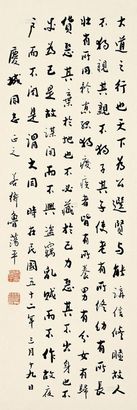 大道之行也天下為公選賢與能講信修睦故人
不獨親其親不獨子其子使老有所終幼有所長
孤獨廢疾者皆有所養男有分女有歸
貨惡其棄於地也不必藏於己力惡其不出於身
為己是故謀閉而不興盜竊亂賊而不作故
戶而不閉是謂大同 時在民國五十二年三月十九日
慶城同志正之 魯蕩平